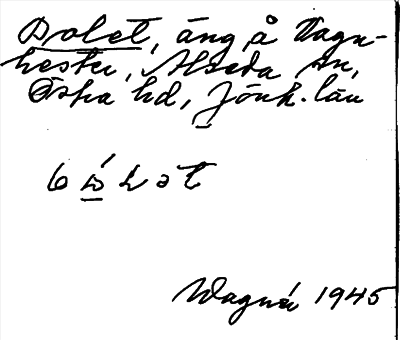 Bolet, äng å Vagn-
hester, Alseda sn,
Östra hd, Jönk. län
Wagnér 1945